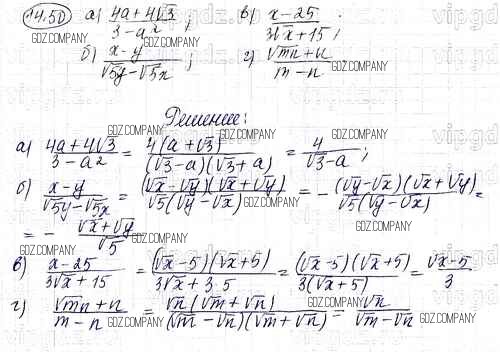 14.50 а) 4a+4√3 / 3-a² ; в) x-25 / 3√x+15 ;
б) x-y / √5y-√5x ; г) √mn+n / m-n
Решение:
а) 4a+4√3 / 3-a² = 4(a+√3) / (√3-a)(√3+a) = 4 / √3-a ;
б) x-y / √5y-√5x = (√x-√y)(√x+√y) / √5(√y-√x) = - (√y-√x)(√x+√y) / √5(√y-√x) =
= - √x+√y / √5
в) x-25 / 3√x+15 = (√x-5)(√x+5) / 3√x+3·5 = (√x-5)(√x+5) / 3(√x+5) = √x-5 / 3
г) √mn+n / m-n = √n(√m+√n) / (√m-√n)(√m+√n) = √n / √m-√n